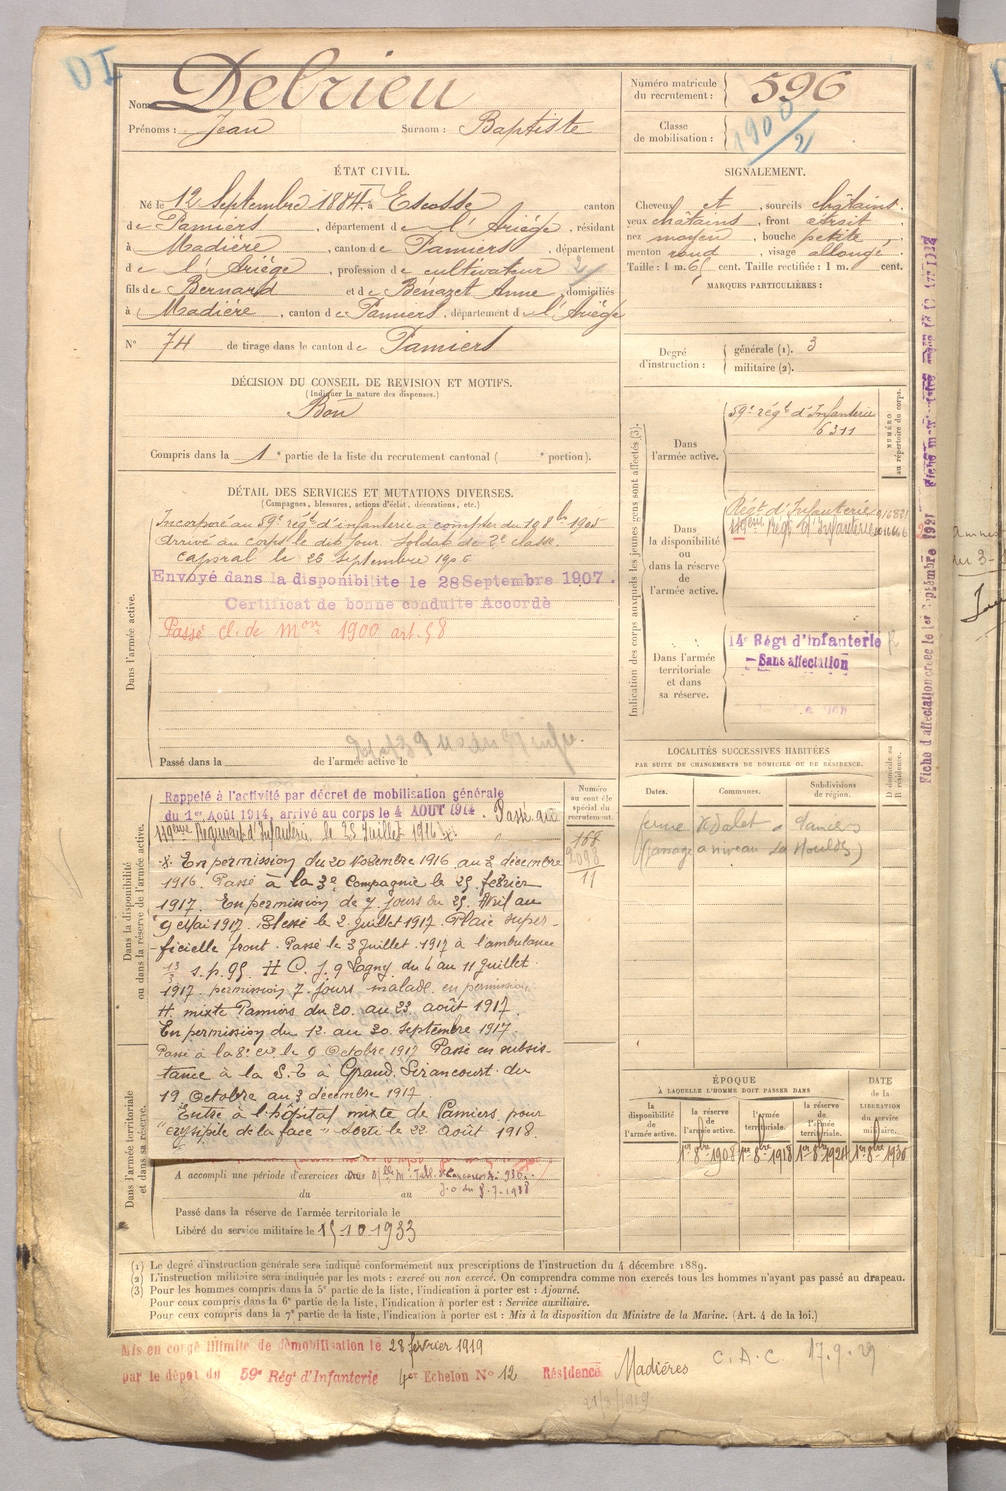 DI
Nom Debrieu
Prénoms : Jean Surnom : Baptiste
Numéro matricule du recrutement : 596
Classe de mobilisation : 1900/2
ÉTAT CIVIL.
Né le 12 Septembre 1884 à Escosse canton
de Pamiers, département de l'Ariège, résidant
à Madière, canton de Pamiers, département
de l'Ariège, profession de cultivateur 2/
fils de Bernard et de Bénazet Anne, domiciliés
à Madière, canton de Pamiers, département de l'Ariège
N° 74 de tirage dans le canton de Pamiers
SIGNALEMENT.
Cheveux et , sourcils châtains.
yeux châtains, front étroit
nez moyen, bouche petite
menton rond, visage allongé
Taille : 1 m. 65 cent. Taille rectifiée : 1 m. cent.
MARQUES PARTICULIÈRES :
Degré d'instruction : générale (1). 3
militaire (2).
DÉCISION DU CONSEIL DE REVISION ET MOTIFS.
(Indiquer la nature des dispenses.)
Bon
Compris dans la 1e partie de la liste du recrutement cantonal ( e portion).
DÉTAIL DES SERVICES ET MUTATIONS DIVERSES.
(Campagnes, blessures, actions d'éclat, décorations, etc.)
Dans l'armée active.
Incorporé au 59e régt d'infanterie à compter du 1 8bre 1905
Arrivé au corps le dit jour. Soldat de 2e classe.
Caporal le 26 Septembre 1906
Envoyé dans la disponibilité le 28 Septembre 1907.
Certificat de bonne conduite Accordé
Passé cl. de mon 1900 art. 58
Passé dans la de l'armée active le
Indication des corps auxquels les jeunes gens sont affectés (3).
NUMÉRO au répertoire du corps.
Dans l'armée active.
59e régt d'Infanterie
6311
Dans la disponibilité ou dans la réserve de l'armée active.
Régt d'Infanterie
Régt d'Infanterie
Dans l'armée territoriale et dans sa réserve.
14e Régt d'infanterie
Sans affectation
LOCALITÉS SUCCESSIVES HABITÉES
PAR SUITE DE CHANGEMENTS DE DOMICILE OU DE RÉSIDENCE.
D domicile ou R résidence.
Dates. Communes. Subdivisions de région.
Pamiers
(passage à niveau
Dans la disponibilité ou dans la réserve de l'armée active.
Numéro au contrôle spécial du recrutement.
168
2098
11
Rappelé à l'activité par décret de mobilisation générale
du 1er Août 1914, arrivé au corps le 4 AOUT 1914. Passé au
Régiment d'Infanterie le 25 Juillet 1916 x.
x. En permission du 20 Novembre 1916 au 3 décembre
1916. Passé à la 3e Compagnie le 25 février
1917. En permission de 7 jours du 25 Avril au
9 Mai 1917. Blessé le 2 juillet 1917. Plaie super-
ficielle front. Passé le 3 juillet 1917 à l'ambulance
13/3 s.p. 95. H C. J. 9 Lagny du 4 au 11 juillet
1917 permission 7 jours malade en permission
H. mixte Pamiers du 20 au 23 août 1917.
En permission du 12 au 20 septembre 1917.
Passé à la 8e cie le 9 Octobre 1917 Passé en subsis-
tance à la S. E à Grand Serancourt du
19 Octobre au 3 décembre 1917
Entré à l'hôpital mixte de Pamiers pour
"erysipèle de la face" Sorti le 22 août 1918.
Dans l'armée territoriale et dans sa réserve.
A accompli une période d'exercices dans
J.O du 8.7.1938
du au
Passé dans la réserve de l'armée territoriale le
Libéré du service militaire le 15.10.1933
ÉPOQUE
À LAQUELLE L'HOMME DOIT PASSER DANS
DATE de la LIBÉRATION du service militaire.
la disponibilité de l'armée active. la réserve de l'armée active. l'armée territoriale. la réserve de l'armée territoriale.
1er 8bre 1908 1er 8bre 1918 1er 8bre 1924 1er 8bre 1930
(1) Le degré d'instruction générale sera indiqué conformément aux prescriptions de l'instruction du 4 décembre 1889.
(2) L'instruction militaire sera indiquée par les mots : exercé ou non exercé. On comprendra comme non exercés tous les hommes n'ayant pas passé au drapeau.
(3) Pour les hommes compris dans la 5e partie de la liste, l'indication à porter est : Ajourné.
Pour ceux compris dans la 6e partie de la liste, l'indication à porter est : Service auxiliaire.
Pour ceux compris dans la 7e partie de la liste, l'indication à porter est : Mis à la disposition du Ministre de la Marine. (Art. 4 de la loi.)
Mis en congé illimité de démobilisation le 28 février 1919
par le dépôt du 59e Régt d'Infanterie 4er Echelon No 12 Résidence Madières
C.A.C 17.9.29
Fiche d'affectation créée le 1er Septembre 1921